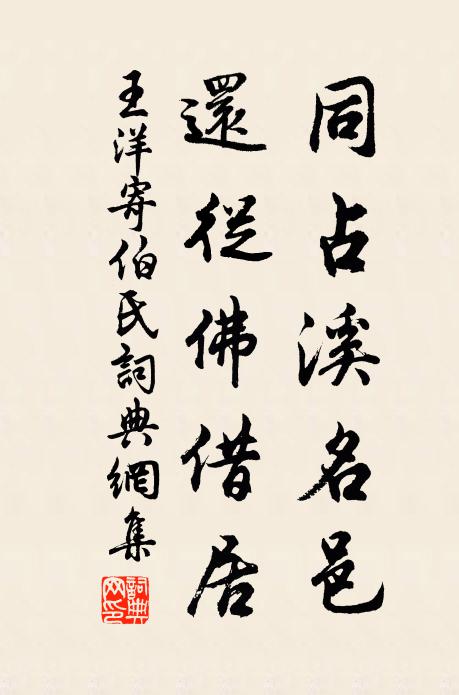 同占溪名邑
還從佛借居
王洋寄伯氏詞典網集
詞典网印